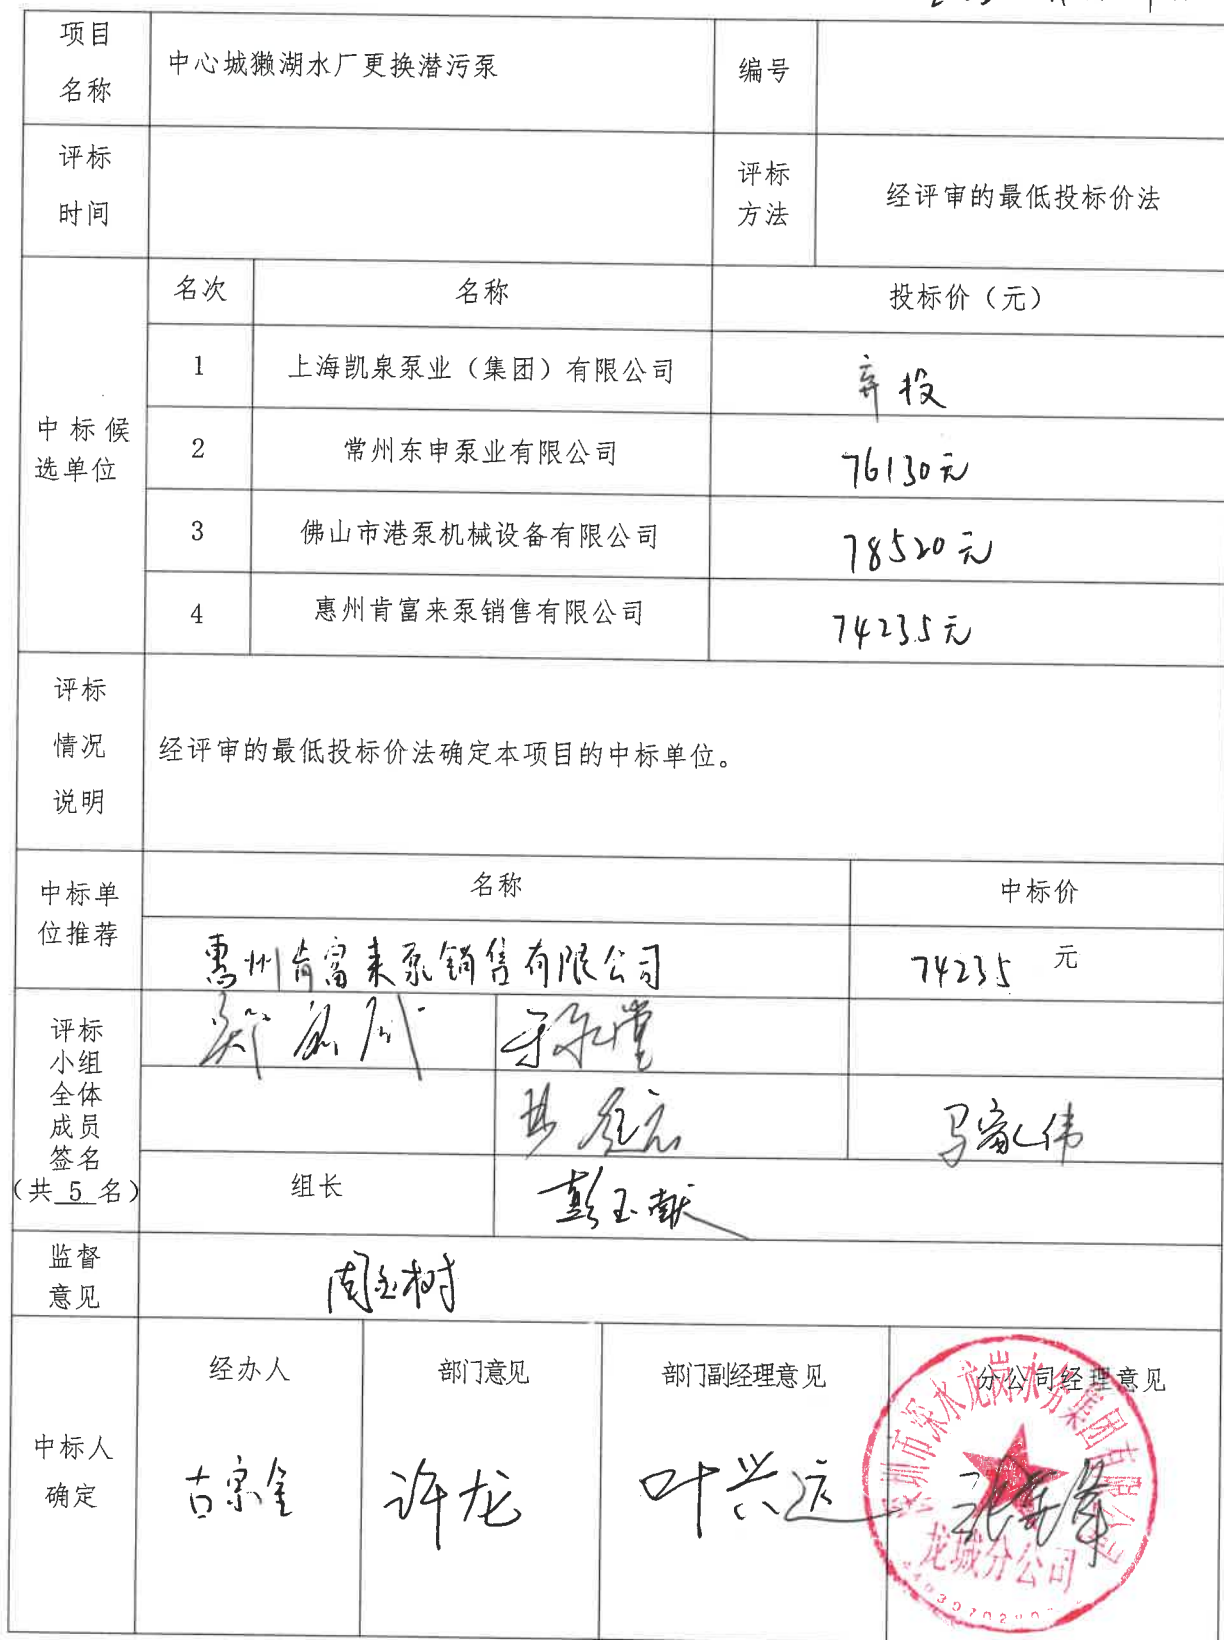 项目名称 中心城獭湖水厂更换潜污泵 编号
评标时间 评标方法 经评审的最低投标价法
中标候选单位 名次 名称 投标价（元）
1 上海凯泉泵业（集团）有限公司 弃投
2 常州东申泵业有限公司 76130元
3 佛山市港泵机械设备有限公司 78520元
4 惠州肯富来泵销售有限公司 74235元
评标情况说明 经评审的最低投标价法确定本项目的中标单位。
中标单位推荐 名称 中标价
惠州肯富来泵销售有限公司 74235 元
评标小组全体成员签名（共 5 名）
马家伟
组长 彭玉献
监督意见 周金树
中标人确定 经办人 部门意见 部门副经理意见 分公司经理意见
古宗金 许龙 叶兴远
深圳市深水龙岗水务集团有限公司
龙城分公司